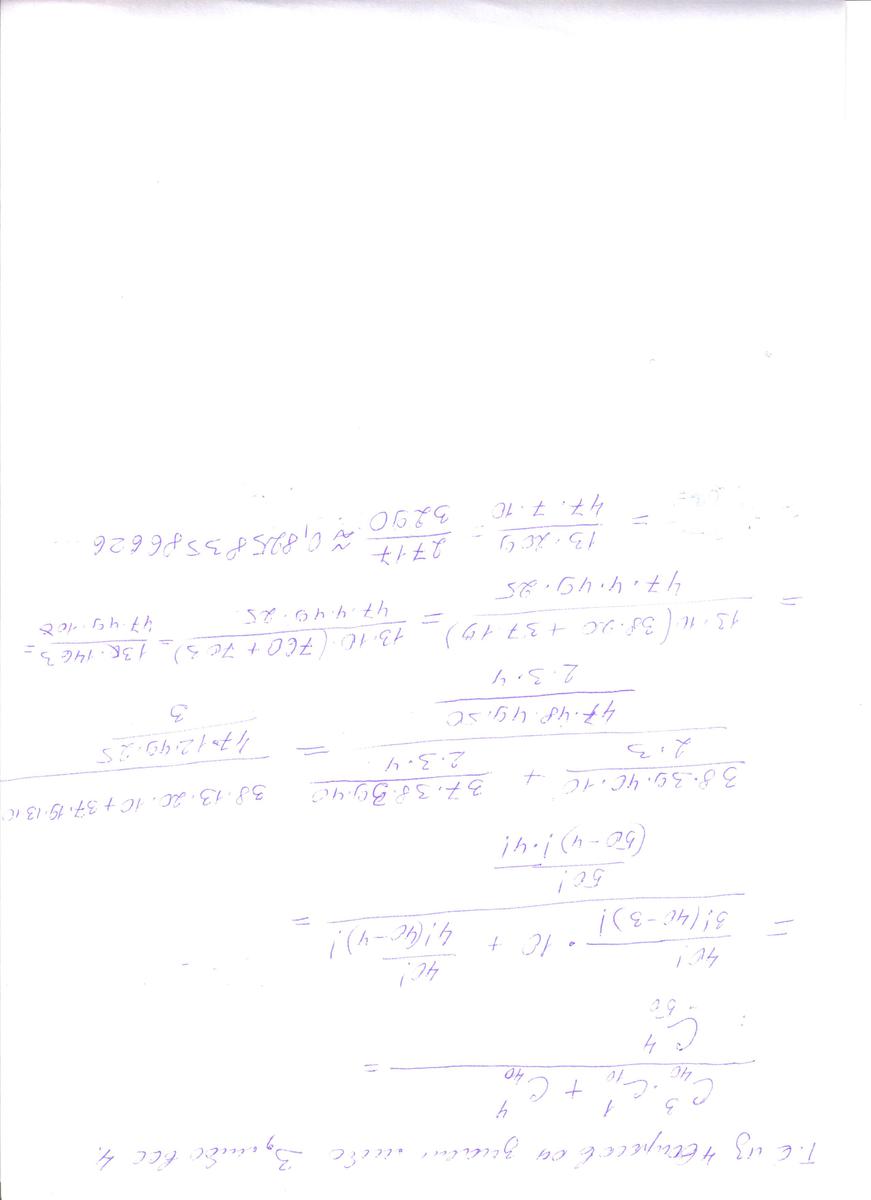 Т.е из 4 вопросов он знает либо 3, либо все 4.
(C_40^3 · C_10^1 + C_40^4) / C_50^4 =
= (40!/(3!(40-3)!) · 10 + 40!/(4!(40-4)!)) / (50!/((50-4)!·4!)) =
(38·39·40·10/(2·3) + 37·38·39·40/(2·3·4)) / (47·48·49·50/(2·3·4)) = (38·13·20·10+37·19·13·10) / (47·12·49·25/3)
= 13·10(38·20+37·19)/(47·4·49·25) = 13·10(760+703)/(47·4·49·25) = 13·1463/(47·49·10) =
= 13·209/(47·7·10) = 2717/3290 ≈ 0,82583586626